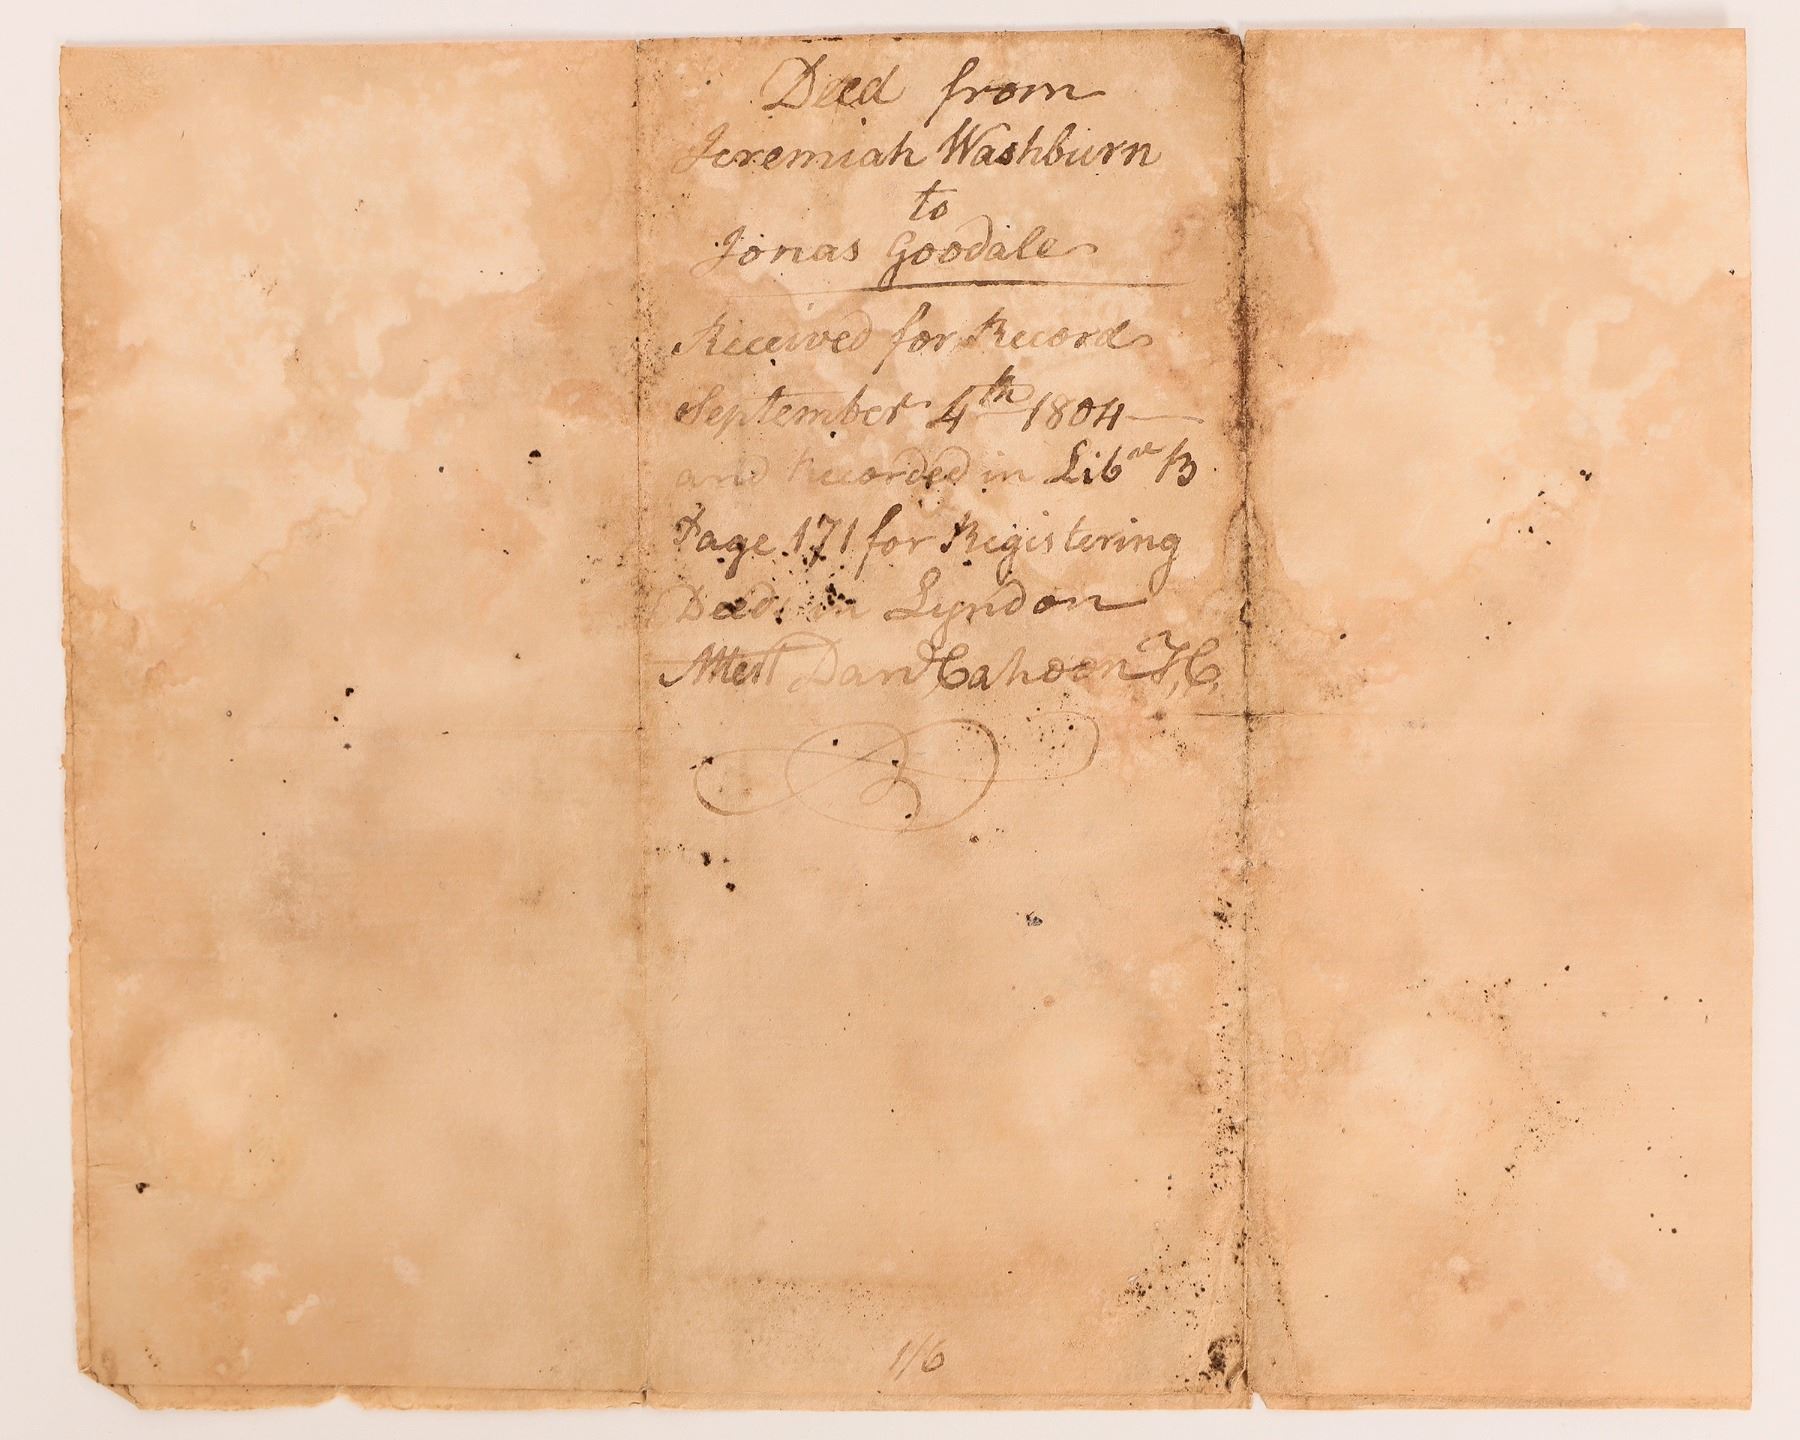 Deed from
Jeremiah Washburn
to
Jonas Goodale
Received for Record
September 4th 1804
and Recorded in Libre B
Page 171 for Registering
Deeds in Lyndon
Attest Danl Cahoon T,C,
1/6